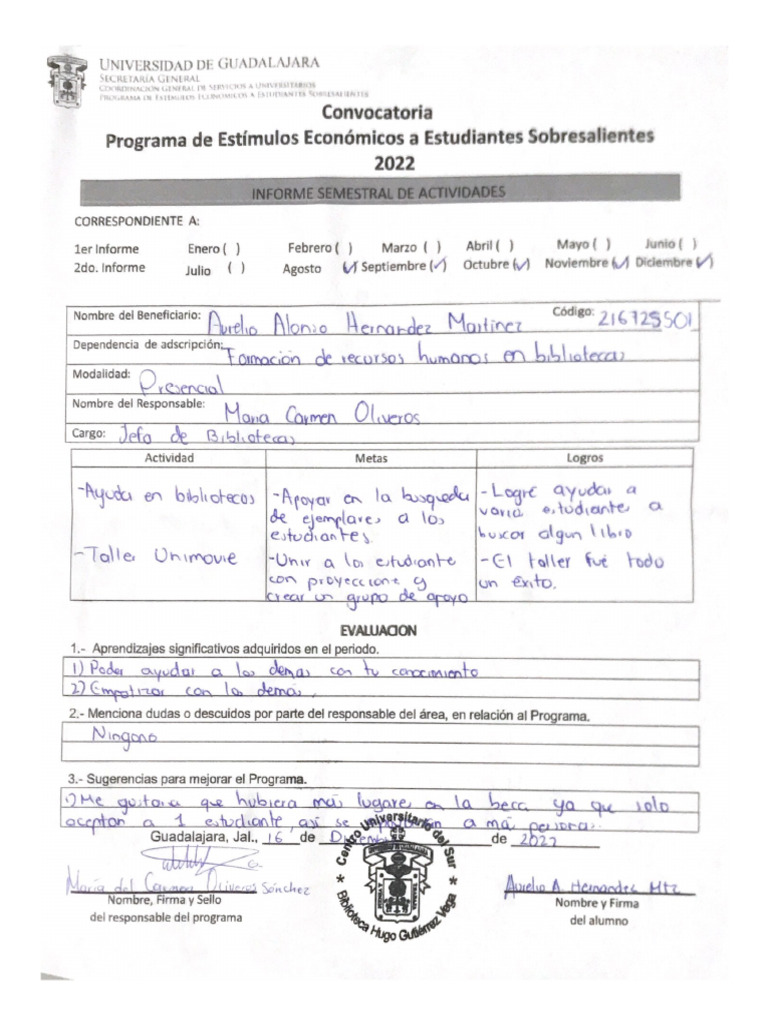 UNIVERSIDAD DE GUADALAJARA
SECRETARÍA GENERAL
COORDINACIÓN GENERAL DE SERVICIOS A UNIVERSITARIOS
PROGRAMA DE ESTÍMULOS ECONÓMICOS A ESTUDIANTES SOBRESALIENTES
Convocatoria
Programa de Estímulos Económicos a Estudiantes Sobresalientes
2022
INFORME SEMESTRAL DE ACTIVIDADES
CORRESPONDIENTE A:
1er Informe Enero ( ) Febrero ( ) Marzo ( ) Abril ( ) Mayo ( ) Junio ( )
2do. Informe Julio ( ) Agosto (✓) Septiembre (✓) Octubre (✓) Noviembre (✓) Diciembre (✓)
Nombre del Beneficiario: Aurelio Alonso Hernandez Martinez Código: 216725501
Dependencia de adscripción: Formación de recursos humanos en bibliotecas
Modalidad: Presencial
Nombre del Responsable: Maria Carmen Oliveros
Cargo: Jefa de Bibliotecas
Actividad Metas Logros
- Ayuda en bibliotecas
- Taller Unimovie
- Apoyar en la busqueda
de ejemplares a los
estudiantes.
- Unir a los estudiante
con proyecciones y
crear un grupo de apoyo
- Logré ayudar a
varios estudiantes a
buscar algun libro
- El taller fué todo
un éxito.
EVALUACION
1.- Aprendizajes significativos adquiridos en el periodo.
1) Poder ayudar a los demas con tu conocimiento
2) Empatizar con los demás.
2.- Menciona dudas o descuidos por parte del responsable del área, en relación al Programa.
Ninguno
3.- Sugerencias para mejorar el Programa.
1) Me gustaria que hubiera más lugares en la beca ya que solo
aceptan a 1 estudiante, así se a más personas.
Guadalajara, Jal., 16 de Diciembre de 2022
María del Carmen Oliveros Sánchez
Nombre, Firma y Sello
del responsable del programa
Centro Universitario del Sur
Biblioteca Hugo Gutiérrez Vega
Aurelio A. Hernandez Mtz
Nombre y Firma
del alumno